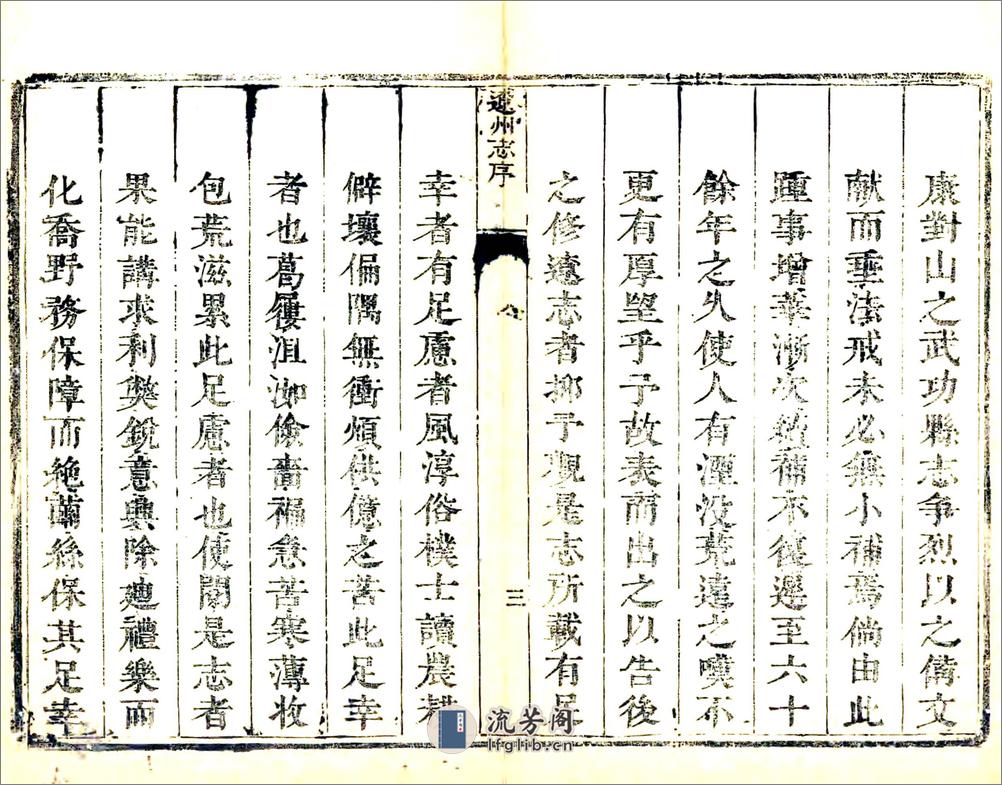 康對山之武功縣志争烈以之備文
献而垂法戒未必無小補焉倘由此
踵事增華漸次續補不復遲至六十
餘年之久使人有湮没荒遠之嘆不
更有厚望乎予故表而出之以告後
之修遼志者抑予觀是志所載有足
遼州志序
三
幸者有足慮者風淳俗樸士讀農耕
僻壤偏隅無衝煩供億之苦此足幸
者也葛屨沮洳儉嗇褊急苦寒薄收
包荒滋累此足慮者也使閱是志者
果能講求利獘銳意興除廸禮樂而
化喬野務保障而絶繭絲保其足幸
流芳阁
lfglib.cn